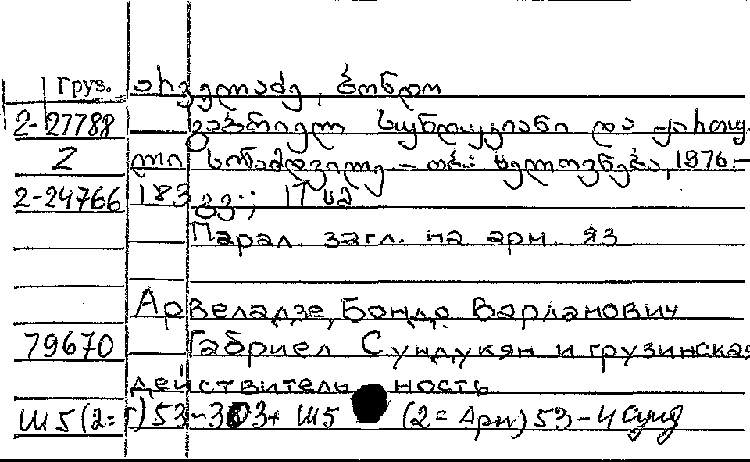 Груз. არველაძე, ბონდო
2-27788 გაბრიელ სუნდუკიანი და ქართუ-
2 ლი სინამდვილე – თბ.: ხელოვნება, 1976.–
2-24766 183 გვ.; 17 სმ
Парал. загл. на арм. яз
Арвеладзе, Бондо Варланович
79670 Габриел Сундукян и грузинская
действительность
Ш5(2=Г)53-3 03+ Ш5 (2=Арм)53-4 Сунд